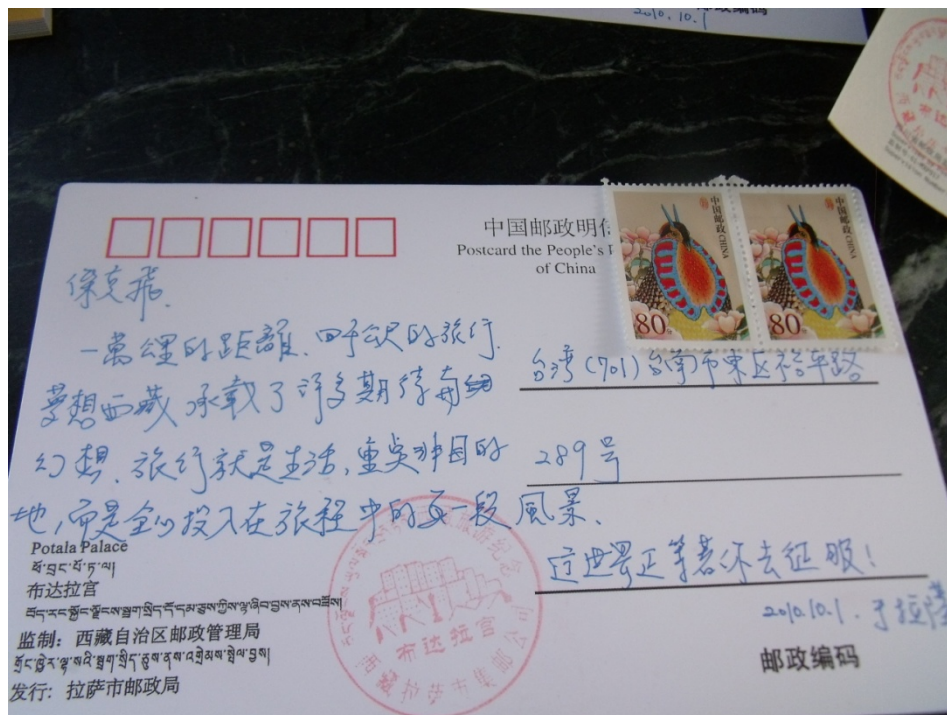 2010.10.1
邮政编码
中国邮政明信
Postcard the People's
of China
中国邮政 CHINA
80
中国邮政 CHINA
80
一萬公里的距離、四千公尺的旅行、
夢想西藏 承载了許多期待與
幻想、旅行就是生活,重点非目的
地,而是全心投入在旅程中的每一段風景、
台湾(701)台南市東区裕平路
289号
这世界正等着你去征服!
2010.10.1. 于拉薩
Potala Palace
ཕོ་བྲང་པོ་ཏ་ལ།
布达拉宫
监制:西藏自治区邮政管理局
发行:拉萨市邮政局
布达拉宫
邮政编码